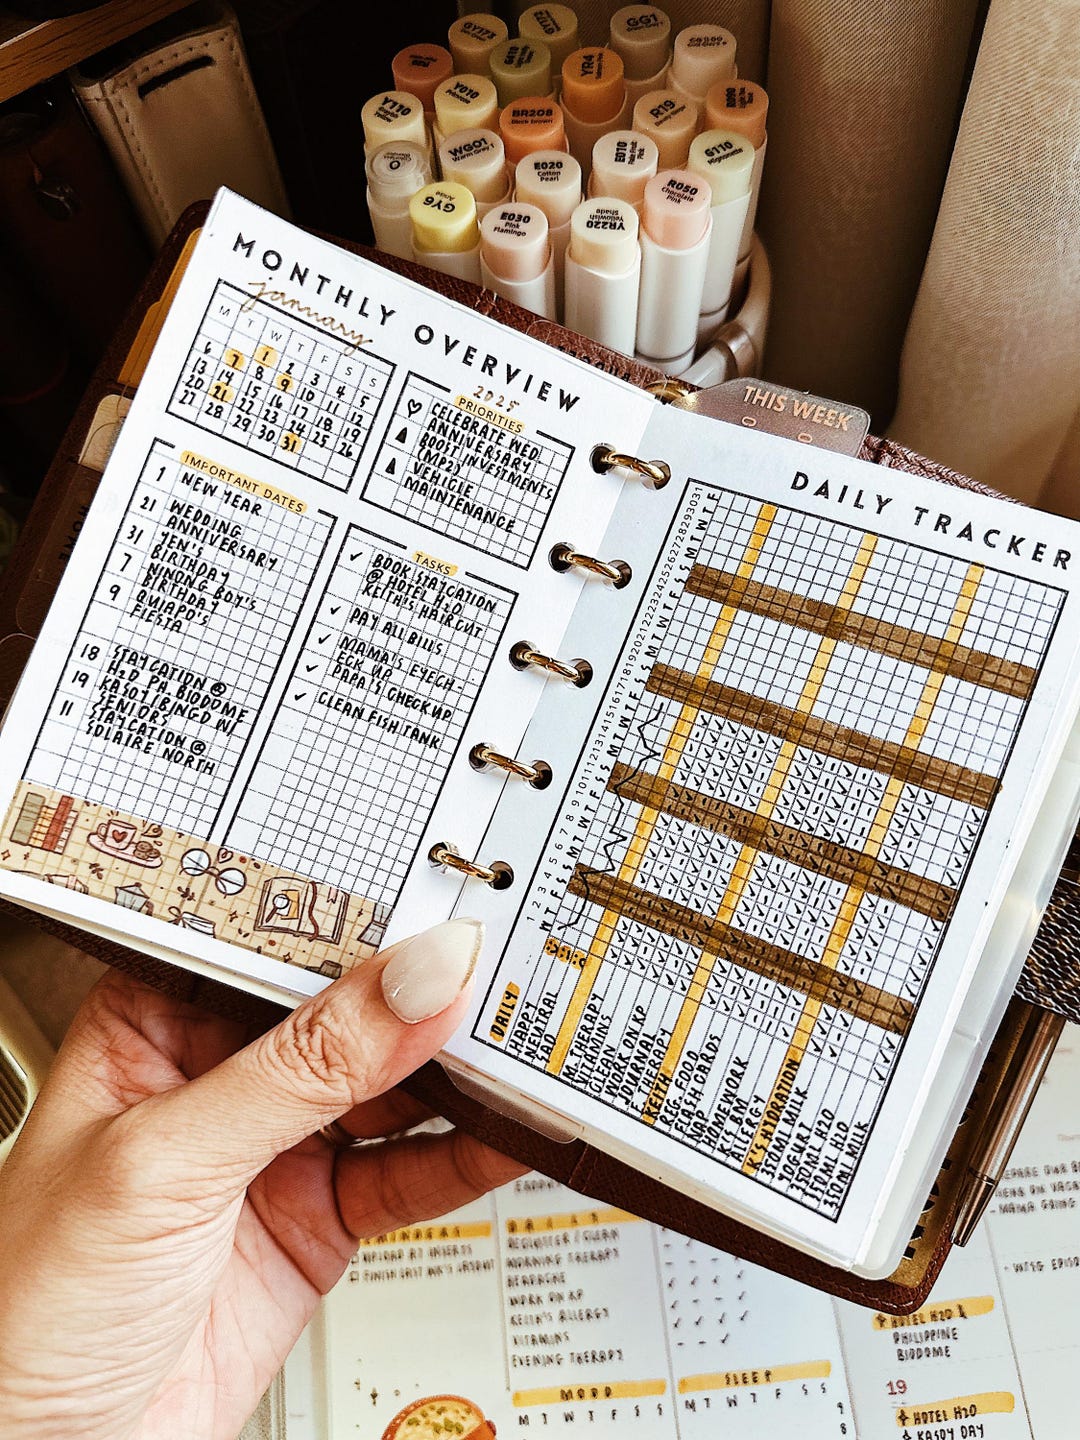 GY173
GY172
GG1
YR4
Y010
Y110
BR208
R19
WG01
Warm Grey 1
E020
Cotton
Pearl
E010
G110
Mignonette
GY6
E030
Pink
Flamingo
YR220
Yellowish
Shade
R050
Chocolate
Pink
MONTHLY OVERVIEW
january
2025
M T W T F S S
1 2 3 4 5
6 7 8 9 10 11 12
13 14 15 16 17 18 19
20 21 22 23 24 25 26
27 28 29 30 31
PRIORITIES
CELEBRATE WED.
ANNIVERSARY
BOOST INVESTMENTS
(MP2)
VEHICLE
MAINTENANCE
IMPORTANT DATES
1 NEW YEAR
21 WEDDING
ANNIVERSARY
31 YEN'S
BIRTHDAY
7 NINONG BOY'S
BIRTHDAY
9 QUIAPO'S
FIESTA
18 STAYCATION @
H2O PA BIODOME
19 KASOY/BINGO W/
SENIORS
11 STAYCATION @
SOLAIRE NORTH
TASKS
✓ BOOK STAYCATION
@ HOTEL H2O
KEITH'S HAIRCUT
✓ PAY ALL BILLS
✓ MAMA'S EYECH-
ECK UP
✓ PAPA'S CHECKUP
✓ CLEAN FISH TANK
THIS WEEK
DAILY TRACKER
1 2 3 4 5 6 7 8 9 10 11 12 13 14 15 16 17 18 19 20 21 22 23 24 25 26 27 28 29 30 31
W T F S S M T W T F S S M T W T F S S M T W T F S S M T W T F
DAILY
HAPPY
NEUTRAL
SAD
M. THERAPY
VITAMINS
CLEAN
WORK ON KP
JOURNAL
E. THERAPY
KEITH
REG. FOOD
FLASH CARDS
NAP
HOMEWORK
K'S BNB
ALLERGY
K'S HYDRATION
350ML MILK
YOGURT
350ML H2O
150ML H2O
350ML MILK
REGISTER / CLEAN
MORNING THERAPY
HEADACHE
WORK ON KP
KEITH'S ALLERGY
VITAMINS
EVENING THERAPY
MOOD
M T W T F S S
SLEEP
M T W T F S S
9
8
HOTEL H2O
PHILIPPINE
BIODOME
19
HOTEL H2O
KASOY DAY
- MAMA GOING